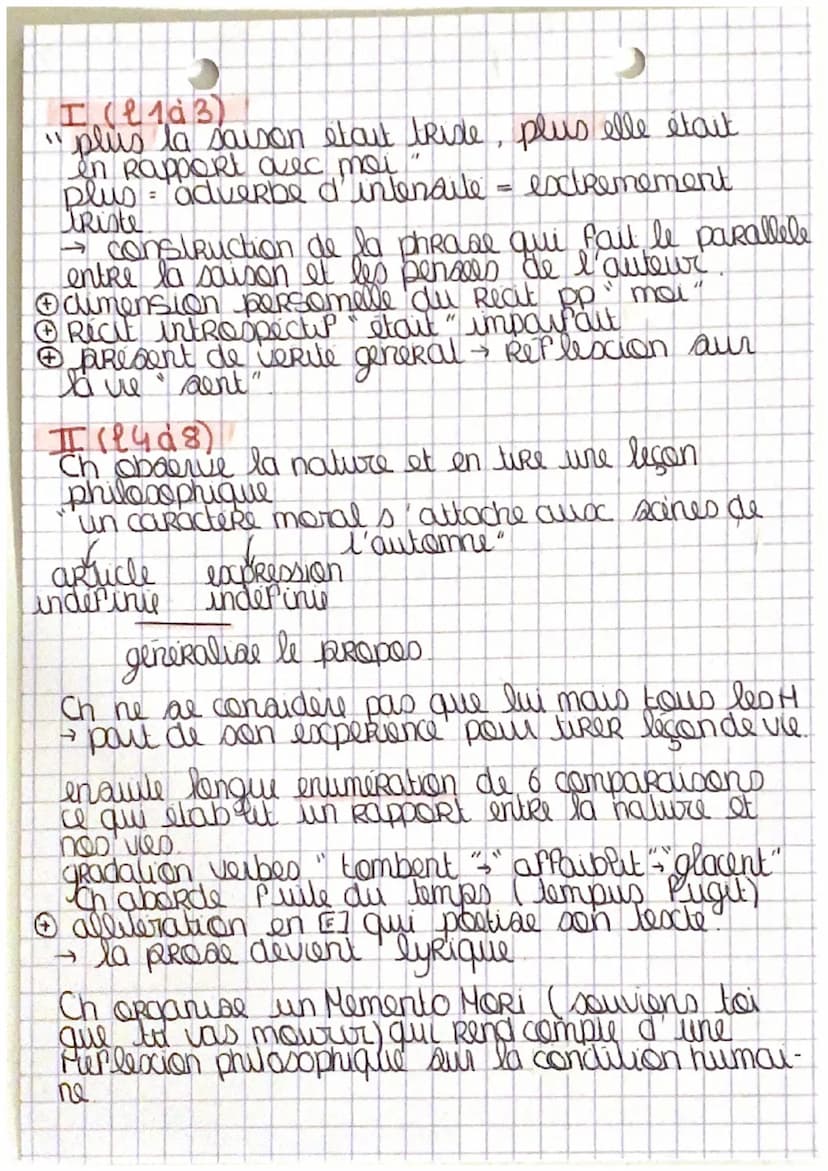 I (l 1 à 3)
"plus la saison était triste, plus elle était
en rapport avec moi"
plus = adverbe d'intensité = extremement
triste
→ construction de la phrase qui fait le parallele
entre la saison et les pensées de l'auteur.
⊕ dimension personnelle du recit pp "moi"
⊕ Récit introspectif "était" imparfait
⊕ présent de verité general → Reflexion sur
la vie "sent"
II (l 4 à 8)
Ch observe la nature et en tire une leçon
philosophique
"un caractère moral s'attache aux scènes de
l'automne"
article expression
indéfinie indéfinie
généralise le propos
Ch ne se considère pas que lui mais tous les H
→ part de son experience pour tirer leçon de vie.
ensuite longue enumération de 6 comparaisons
ce qui établit un rapport entre la nature et
nos vies.
gradation verbes "tombent" → "affaiblit" → "glacent"
Ch aborde fuite du temps (tempus fugit)
⊕ allitération en [F] qui poétise son texte.
→ la prose devient lyrique
Ch organise un Memento Mori (souviens toi
que tu vas mourir) qui rend compte d'une
réflexion philosophique sur la condition humai-
ne